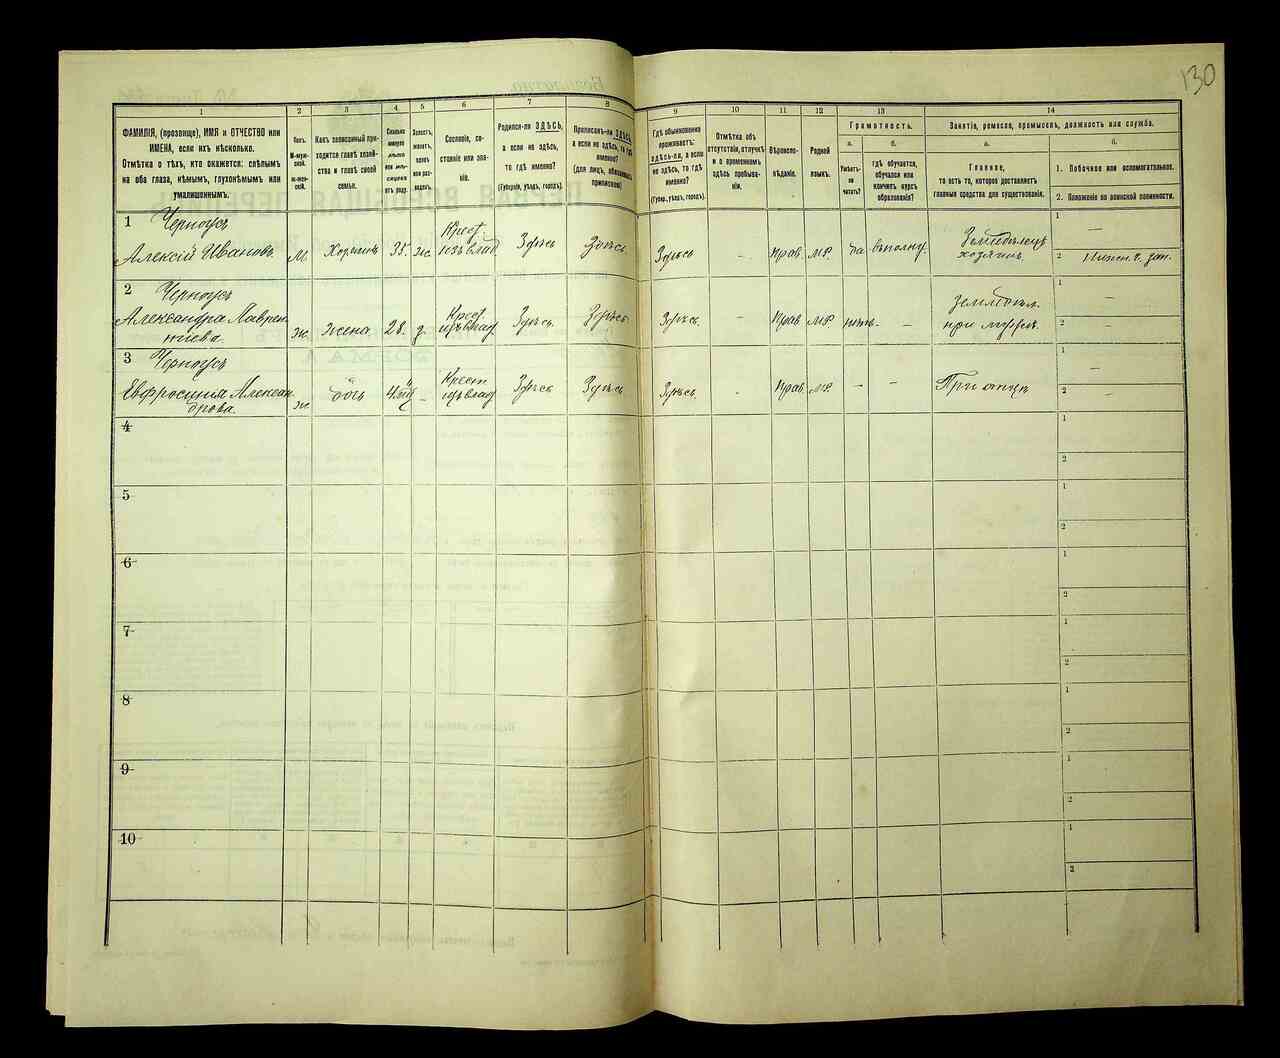 130
1
2
3
4
5
6
7
8
9
10
11
12
13
14
ФАМИЛІЯ, (прозвище), ИМЯ и ОТЧЕСТВО или
ИМЕНА, если ихъ нѣсколько.
Отмѣтка о тѣхъ, кто окажется: слѣпымъ
на оба глаза, нѣмымъ, глухонѣмымъ или
умалишеннымъ.
Полъ.
М-муж-
ской.
Ж-жен-
скій.
Какъ записанный при-
ходится главѣ хозяй-
ства и главѣ своей
семьи.
Сколько
минуло
лѣтъ
или мѣ-
сяцевъ
отъ роду.
Холостъ,
женатъ,
вдовъ
или раз-
веденъ.
Сословіе, со-
стояніе или зва-
ніе.
Родился-ли ЗДѢСЬ,
а если не здѣсь,
то гдѣ именно?
(Губернія, уѣздъ, городъ).
Приписанъ-ли ЗДѢСЬ,
а если не здѣсь, то гдѣ
именно?
(для лицъ, обязанныхъ
припискою)
Гдѣ обыкновенно
проживаетъ:
здѣсь-ли, а если
не здѣсь, то гдѣ
именно?
(Губер., уѣздъ, городъ).
Отмѣтка объ
отсутствіи, отлучкѣ
и о временномъ
здѣсь пребыва-
ніи.
Вѣроиспо-
вѣданіе.
Родной
языкъ.
Грамотность.
а.
Умѣетъ-
ли
читать?
б.
гдѣ обучается,
обучался или
кончилъ курсъ
образованія?
Занятіе, ремесло, промыселъ, должность или служба.
а.
Главное,
то есть то, которое доставляетъ
главныя средства для существованія.
б.
1. Побочное или вспомогательное.
2. Положеніе по воинской повинности.
1 Черноусъ
Алексій Ивановъ. М Хозяинъ 35. ж. Крест. изъ влад Здѣсь Здѣсь Здѣсь - Прав. МР да Земледѣлецъ
хозяинъ
1 —
2
2 Черноусъ
Александра Лаврен
тіева. ж Жена 28. з. Крест изъ влад Здѣсь. Здѣсь Здѣсь. - Прав МР нѣтъ - Земледѣл.
при мужѣ.
1 —
2 —
3 Черноусъ
Евфросинія Алексан
дрова. ж дочь - Крест изъ влад Здѣсь Здѣсь Здѣсь. - Прав. МР - - При отцѣ
1 —
2 —
4
1
2
5
1
2
6
1
2
7
1
2
8
1
2
9
1
2
10
1
2